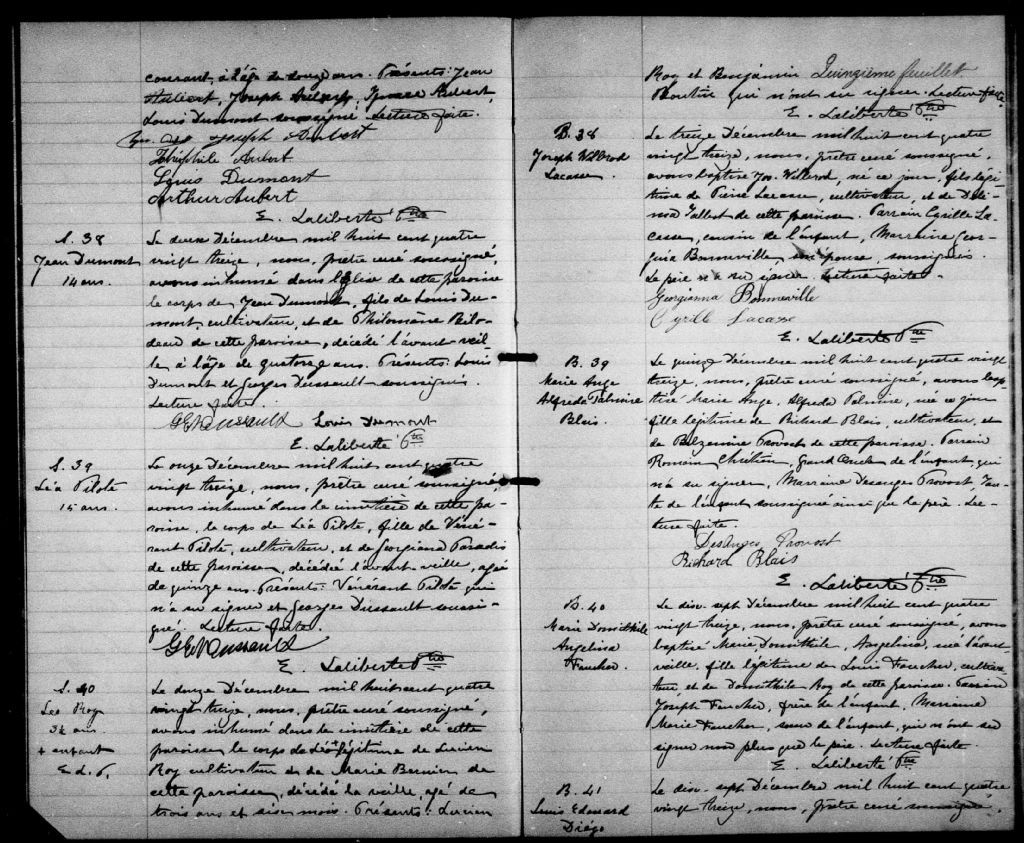 courant, à l'âge de douze ans. Présents: Jean
Aubert, Joseph Aubert, Aubert,
Louis Dumont soussigné. Lecture faite.
Joseph Aubert
Théophile Aubert
Louis Dumont
Arthur Aubert
E. Laliberté Ptre
S. 38
Jean Dumont
14 ans.
Le deux Décembre mil huit cent quatre
vingt treize, nous, prêtre curé soussigné,
avons inhumé dans l'Eglise de cette paroisse
le corps de Jean Dumont, fils de Louis Du-
mont, cultivateur, et de Philomène Bilo-
deau de cette paroisse, décédé l'avant-veil-
le à l'âge de quatorze ans. Présents: Louis
Dumont et Georges Dussault soussignés.
Lecture faite.
GEN Dussault Louis Dumont
E. Laliberté Ptre
S. 39
Léa Pilote
15 ans.
Le onze Décembre mil huit cent quatre
vingt treize, nous, prêtre curé soussigné,
avons inhumé dans le cimetière de cette pa-
roisse, le corps de Léa Pilote, fille de Véné-
rant Pilote, cultivateur, et de Georgiana Paradis
de cette paroisse, décédée l'avant-veille, agée
de quinze ans. Présents: Vénérant Pilote qui
n'a su signer et Georges Dussault soussi-
gné. Lecture faite.
GEN Dussault
E. Laliberté Ptre
S. 40
Léo Roy
3½ ans.
+ enfant
E. L. P.
Le douze Décembre mil huit cent quatre
vingt treize, nous, prêtre curé soussigné,
avons inhumé dans le cimetière de cette
paroisse le corps de Léo + légitime de Lucien
Roy cultivateur et de Marie Bernier de
cette paroisse, décédé la veille, agé de
trois ans et six mois. Présents: Lucien
Quinzième feuillet
Roy et Benjamin
Boutin qui n'ont su signer. Lecture faite.
E. Laliberté Ptre
B. 38
Joseph Wilbrod
Lacasse
Le treize Décembre mil huit cent quatre
vingt treize, nous, prêtre curé soussigné,
avons baptisé Jos. Wilbrod, né ce jour, fils légi-
time de Pierre Lacasse, cultivateur, et de Deli-
ma Vallest de cette paroisse. Parrain Cyrille La-
casse, cousin de l'enfant, Marraine Geor-
giana Bonneville son épouse, soussignés.
Le père n'a su signer. Lecture faite.
Georgianna Bonneville
Cyrille Lacasse
E. Laliberté Ptre
B. 39
Marie Ange
Alfreda Palmire
Blais.
Le quinze Décembre mil huit cent quatre vingt
treize, nous, prêtre curé soussigné, avons bap-
tisé Marie Ange, Alfreda Palmire, née ce jour
fille légitime de Richard Blais, cultivateur, et
de Belzemire Provost de cette paroisse. Parrain
Romain Chrétien, Grand Oncle de l'enfant, qui
n'a su signer, Marraine Desanges Provost, Tan-
te de l'enfant soussignée ainsi que le père. Lec-
ture faite.
DesAnges Provost
Richard Blais
E. Laliberté Ptre
B. 40
Marie Domithile
Angelina
Faucher.
Le dix-sept Décembre mil huit cent quatre
vingt treize, nous, prêtre curé soussigné, avons
baptisé Marie Domithile, Angelina, née l'avant-
veille, fille légitime de Louis Faucher, cultiva-
teur, et de Domithile Roy de cette paroisse. Parrain
Joseph Faucher, frère de l'enfant, Marraine
Marie Faucher, soeur de l'enfant, qui n'ont su
signer non plus que le père. Lecture faite.
E. Laliberté Ptre
B. 41
Louis Edouard
Diégo
Le dix-sept Décembre mil huit cent quatre
vingt treize, nous, prêtre curé soussigné,